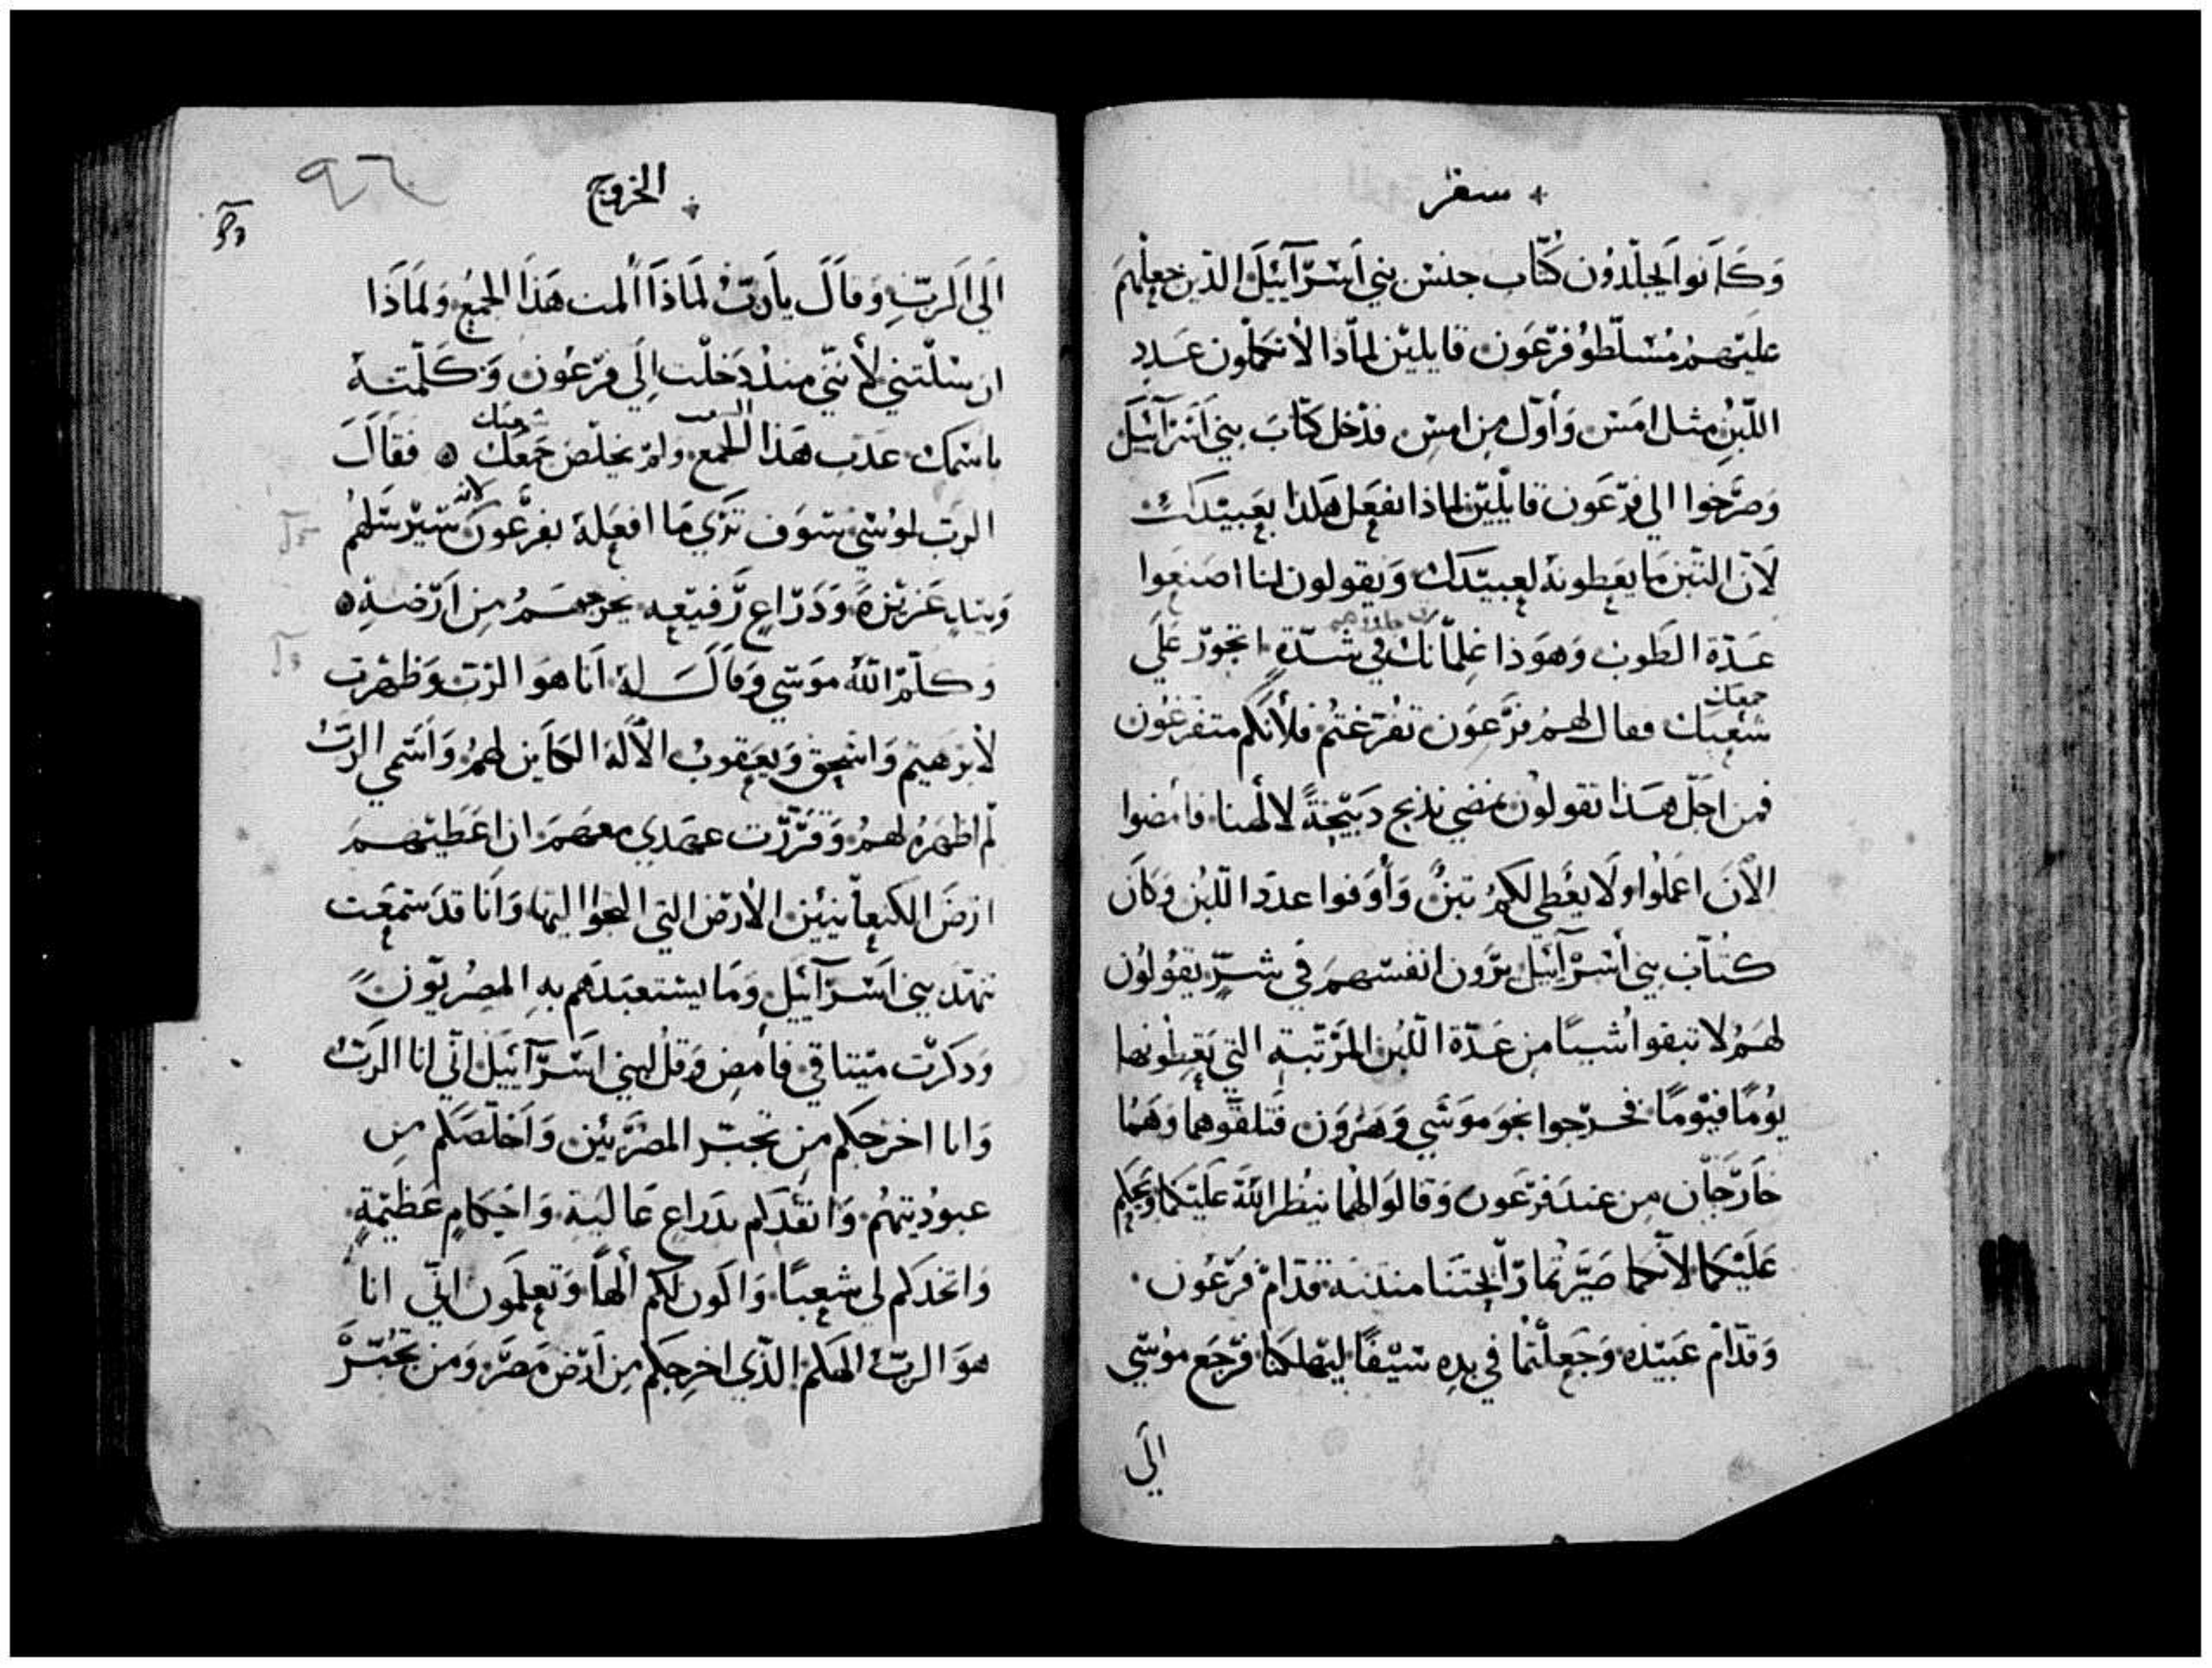 سفر
وَكَانوا يجلّدُون كُتّاب جنس بني اسرآئيل الذين جعلهم
عليهم مُسَلّطو فرعَون قايلين لماذا لا تكملون عدد
اللّبن مثل امس وَأوّل من امس فدخل كتّاب بني اسرآئيل
وَصَرخوا الي فرعَون قايلين لماذا تفعل هكذا بعَبيدك
لان التبن ما يعَطونه لعبيدك وَيقولون لنا اصنعوا
عَدّة الطوب وَهوَذا غلمانك في شدّةٍ اتجوّر عَلَي
جمعك
شعبك فقال لهم فرعَون تفرّغتم فلأنكم متفرغون
فمن اجل هَذا تقولون نمضي نذبح دَبيحَةً لالهنا فأمضوا
الآن اعملوا ولا يعَطي لكم تبنٌ وَأوفوا عدد اللّبن وَكان
كتاب بني أسرآئيل يَرَون انفسهم في شرٍّ يقولون
لهم لا تبقوا شيئا من عَدّة اللّبن المرَتّبة التي يَعطونها
يومًا فيومًا فخرجوا نحو موَسَي وَهَرون فتلقوهما وَهما
خارَجان من عند فرعَون وَقالوا لهما ينظر الله عَليكما وَيحكم
عَليكما لأنكما صَيّرتما رآئحتنا منتنة قدّام فرعَون
وَقدّام عَبيده وَجَعلتما في يده سَيفًا ليهلكنا فرَجَع موسَي
الَي
الخروج
٩٦
الَي الرَبّ وَقَالَ يارَبُ لمَاذَا ألمت هَذا الجمعُ وَلماذَا
ارسلتني لأنني منذ دَخلت إلي فرعون وَكَلّمته
الشعب شعبك
باسمك عَذب هَذا الجمع وَلم يخلّص جمعَك ٥ فقَالَ
لانه
الرَب لموسَي سَوف تَرَي مَا افعَله بفرعَون سَيرسَلهم
وَبيَدٍ عَزيزة وَدَرَاعٍ رَفيعه يخرجهم من ارضه ٥
وَكلّم الله موَسَي وَقالَ له انا هو الرَب وَظهرت
لأبرَهيم وَاسحق وَيعقوب الألَه الكاين لهم وَاسَمي الرَبُ
لم اظهره لهم وَقرّرت عهدي معهم ان اعَطيهم
ارض الكنعانيين الأرض التي التجوا اليها وَانا قد سمعت
تنهّد بني اسَرآئيل وَمَا يستعبدَهم به المصريّون
وَدكرت ميتاقي فأمض وَقل لبني اسَرآئيل انّي انا الرَبُ
وَانا اخرجكم من تجبّر المصريين وَاخلّصكم من
عبوديتهم وَانقدكم بدراعٍ عَاليةٍ وَاحكامٍ عَظيمةٍ
وَاتخدكم لي شعبًا وَاكون لكم ألهاً وَتعلمون انّي انا
هوَ الرَبُ الهكم الذي اخرجكم من ارض مَصَر وَمن تجبّر